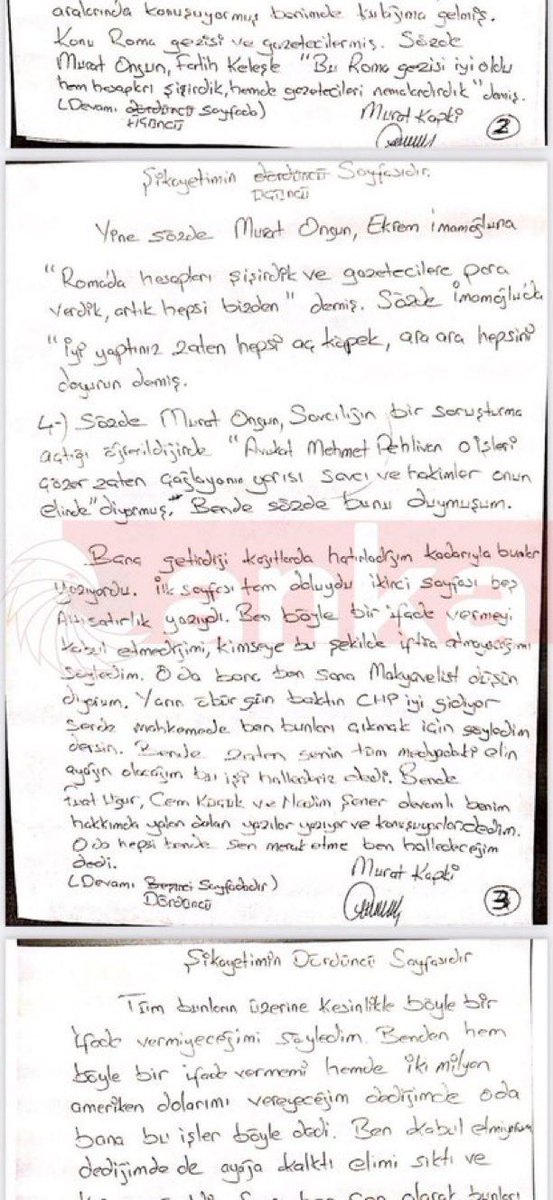 aralarında konuşuyormuş benimde kulağıma gelmiş.
Konu Roma gezisi ve gazetecilermiş. Sözde
Murat Ongun, Fatih Keleşle "Bu Roma gezisi iyi oldu
hem hesapları şişirdik, hemde gazetecileri nemalandırdık" demiş.
(Devamı dördüncü sayfada) Murat Kapki
üçüncü
2
Şikayetimin dördüncü Sayfasıdır.
üçüncü
Yine sözde Murat Ongun, Ekrem İmamoğluna
"Roma'da hesapları şişirdik ve gazetecilere para
verdik, artık hepsi bizden" demiş. Sözde İmamoğlu'da
"iyi yaptınız zaten hepsi aç köpek, ara ara hepsini
doyurun demiş.
4-) Sözde Murat Ongun, Savcılığın bir soruşturma
açtığı öğrenildiğinde "Avukat Mehmet Pehlivan o işleri
çözer zaten Çağlayanın yarısı savcı ve hakimler onun
elinde" diyormuş. Bende sözde bunu duymuşum.
Bana getirdiği kağıtlarda hatırladığım kadarıyla bunlar
yazıyordu. ilk sayfası tam doluydu ikinci sayfası beş
Altı satırlık yazıydı. Ben böyle bir ifade vermeyi
kabul etmediğimi, kimseye bu şekilde iftira atmayacağımı
söyledim. O da bana ben sana Makyavelist düşün
diyorum. Yarın öbür gün baktın CHP iyi gidiyor
sende mahkemede ben bunları çıkmak için söyledim
dersin. Bende zaten senin tüm medyadaki elin
ayağın olacağım bu işi hallederiz dedi. Bende
Fuat Uğur, Cem Küçük ve Nedim Şener devamlı benim
hakkımda yalan dolan yazılar yazıyor ve konuşuyorlar dedim.
O da hepsi bende sen merak etme ben halledeceğim
dedi. Murat Kapki
(Devamı Beşinci Sayfadadır)
Dördüncü
3
anka
Şikayetimin Dördüncü Sayfasıdır
Tüm bunların üzerine kesinlikle böyle bir
ifade vermiyeceğimi söyledim. Benden hem
böyle bir ifade vermemi hemde iki milyon
amerikan dolarımı vereyeceğim dediğimde oda
bana bu işler böyle dedi. Ben kabul etmiyorum
dediğimde de ayağa kalktı elimi sıktı ve